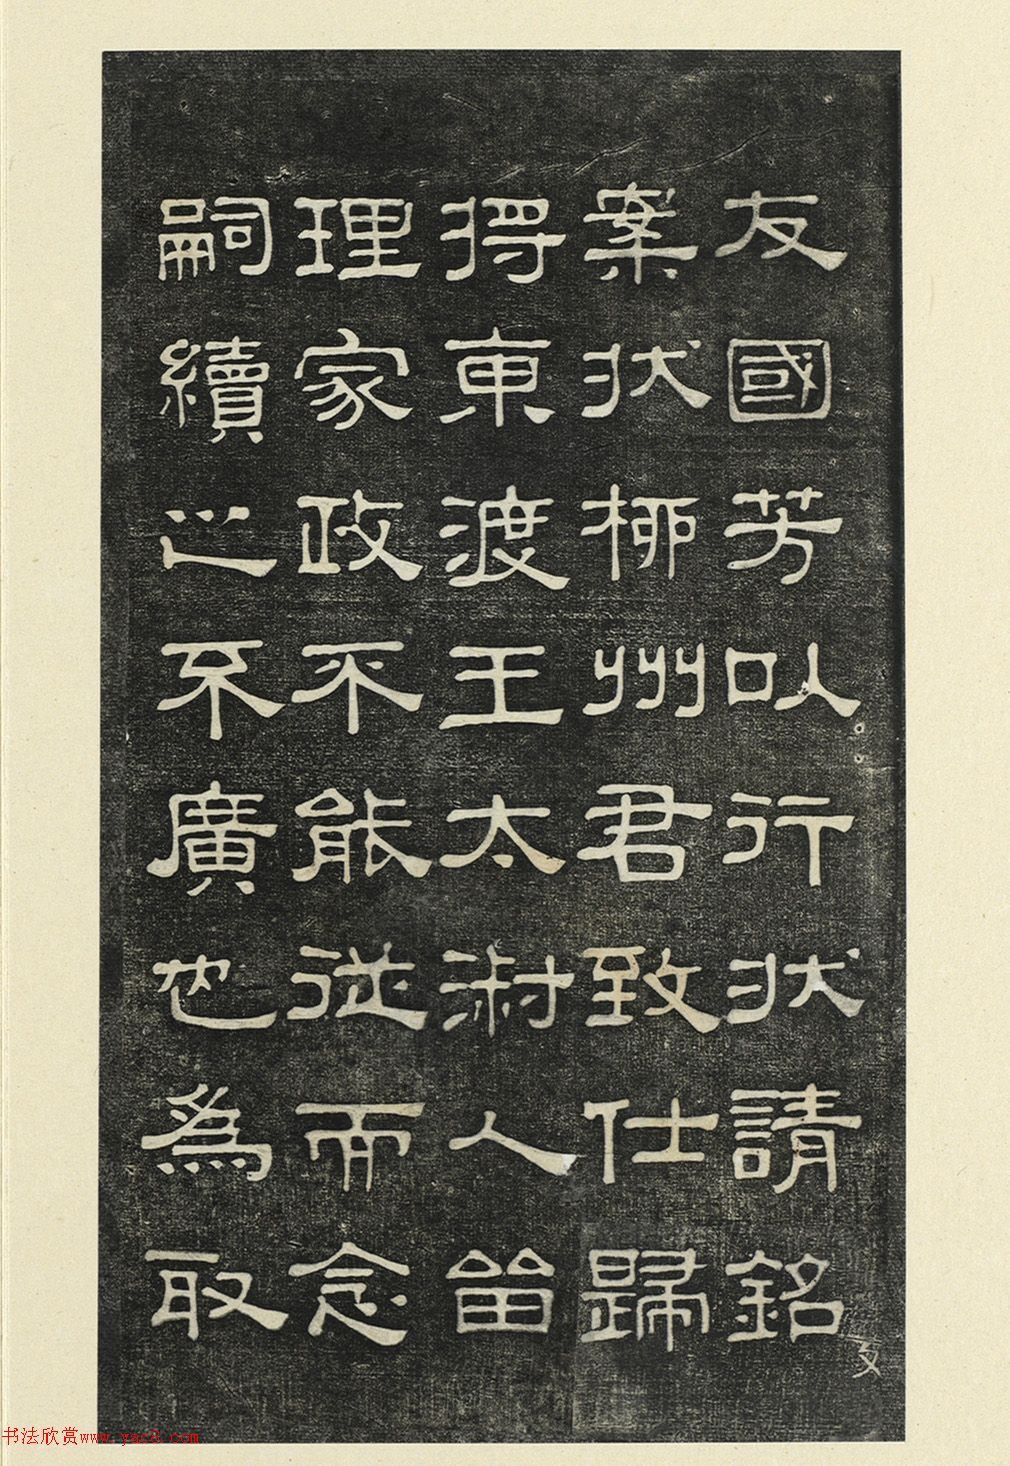 友國芳以行狀請銘
案狀柳州君致仕歸
得東渡王太淑人留
理家政不能從而念
嗣續之不廣也為取
书法欣赏www.yac8.com